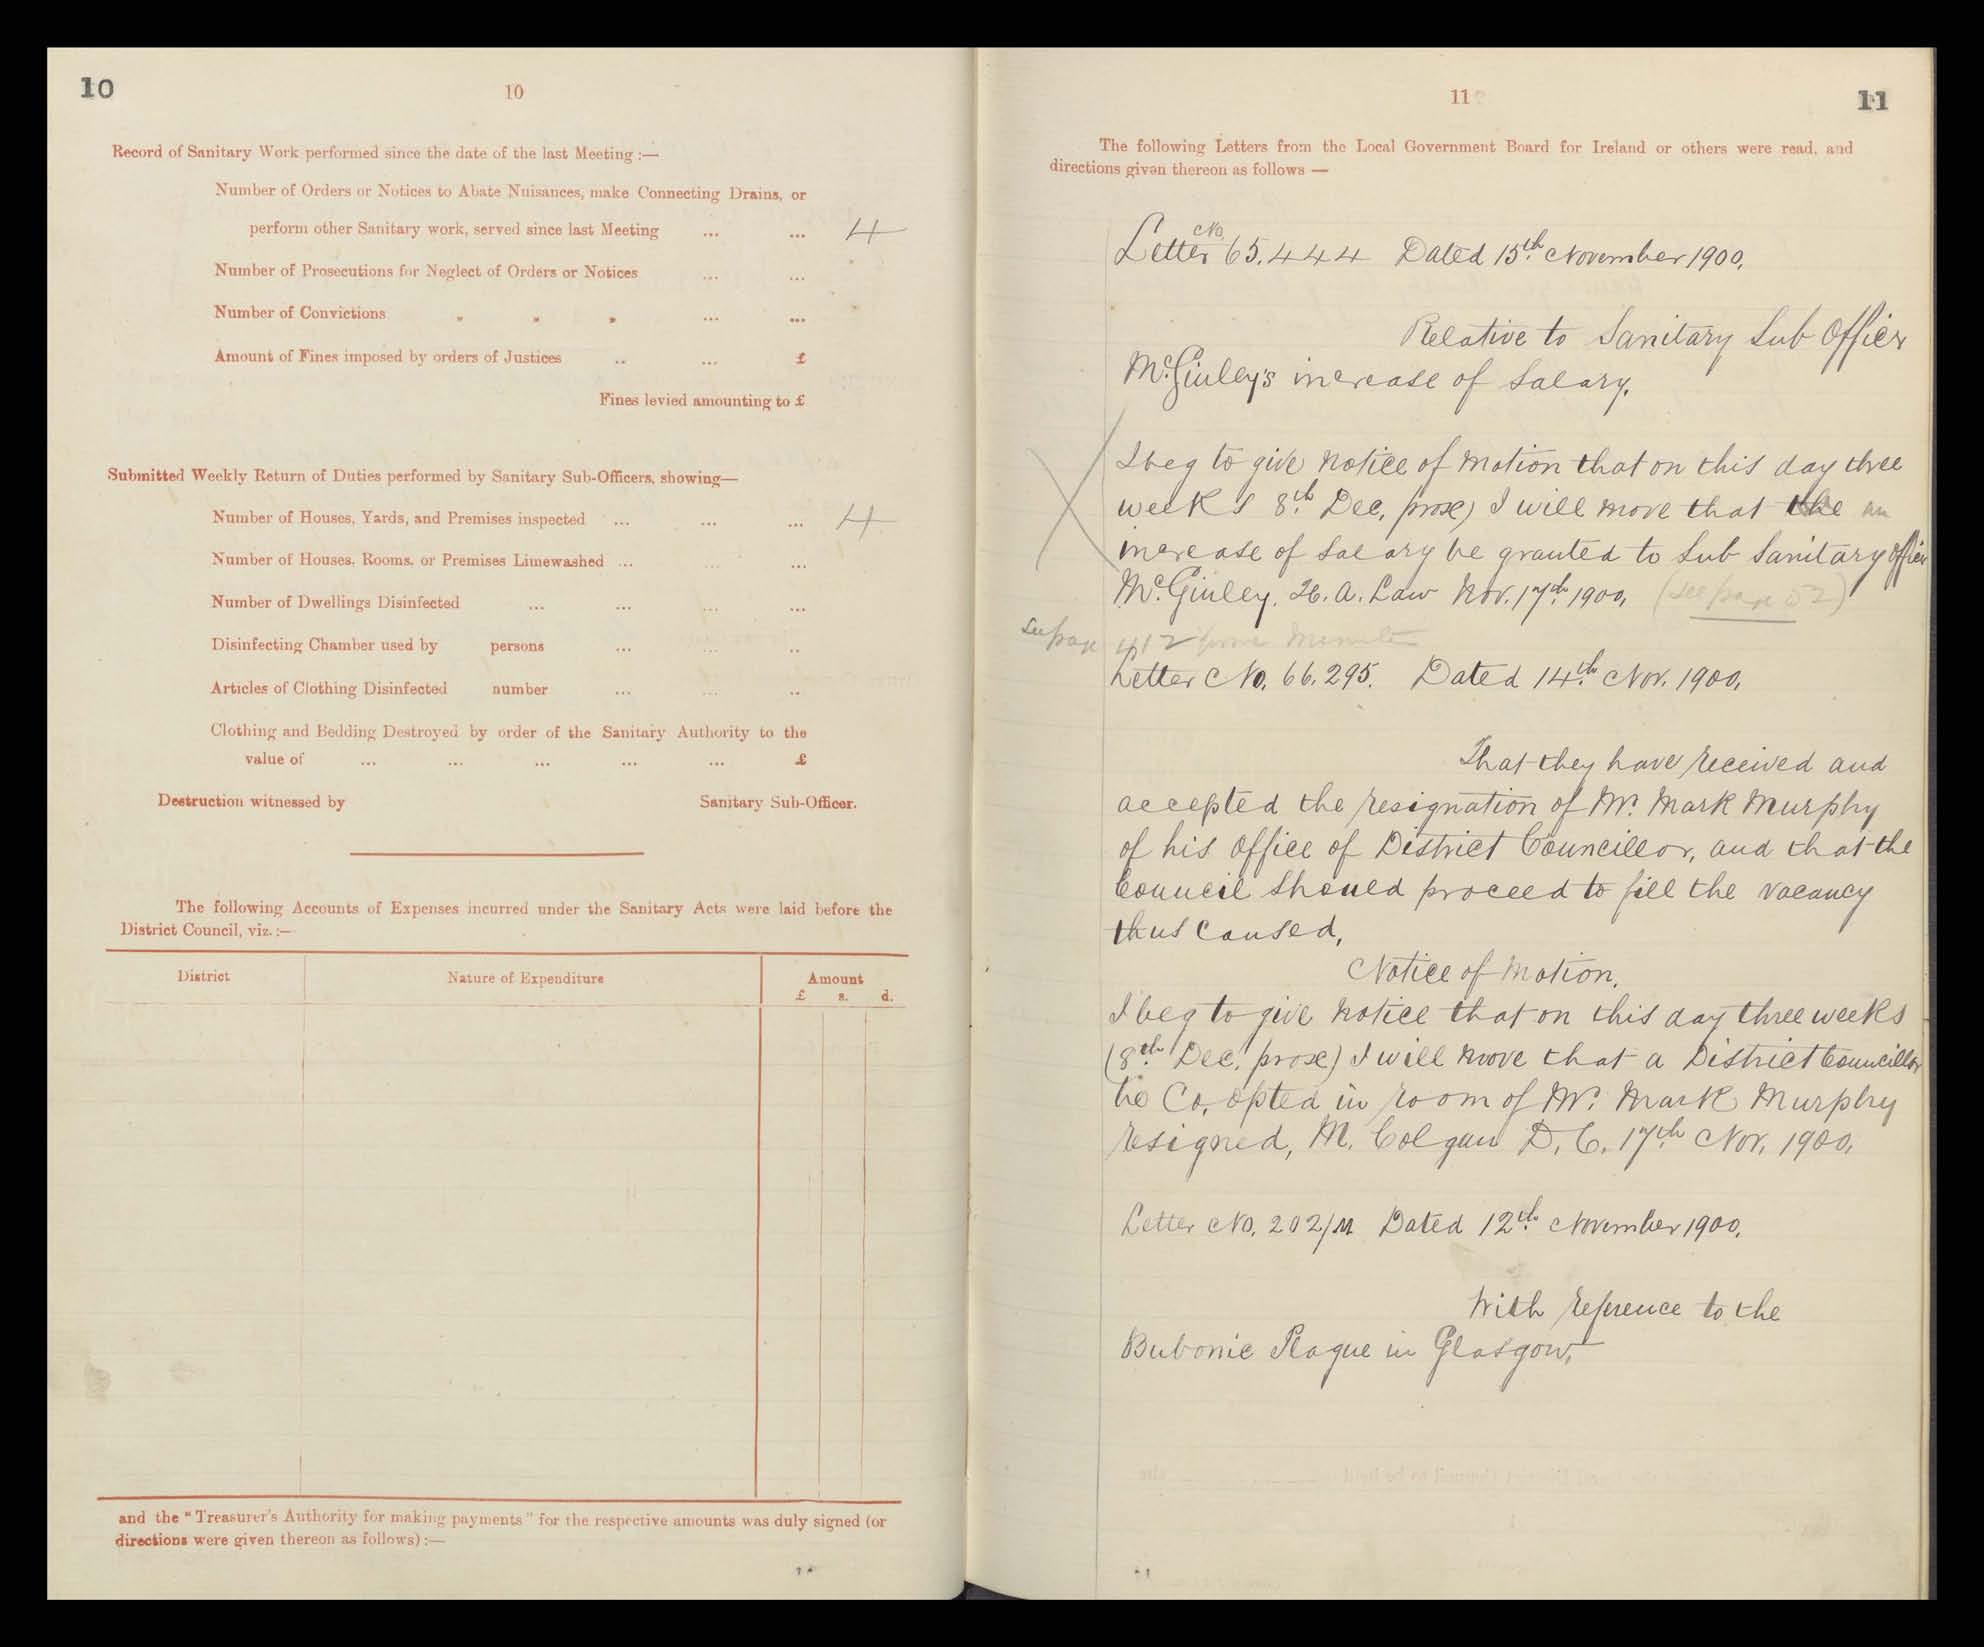 10
10
Record of Sanitary Work performed since the date of the last Meeting :—
Number of Orders or Notices to Abate Nuisances, make Connecting Drains, or
perform other Sanitary work, served since last Meeting ... ... 4
Number of Prosecutions for Neglect of Orders or Notices ... ...
Number of Convictions „ „ „ ... ...
Amount of Fines imposed by orders of Justices .. ... £
Fines levied amounting to £
Submitted Weekly Return of Duties performed by Sanitary Sub-Officers, showing—
Number of Houses, Yards, and Premises inspected ... ... ... 4
Number of Houses, Rooms, or Premises Limewashed ... ... ...
Number of Dwellings Disinfected ... ... ... ...
Disinfecting Chamber used by persons ... ... ..
Articles of Clothing Disinfected number ... ... ..
Clothing and Bedding Destroyed by order of the Sanitary Authority to the
value of ... ... ... ... ... £
Destruction witnessed by Sanitary Sub-Officer.
The following Accounts of Expenses incurred under the Sanitary Acts were laid before the
District Council, viz. :—
District Nature of Expenditure Amount
£ s. d.
and the "Treasurer's Authority for making payments" for the respective amounts was duly signed (or
directions were given thereon as follows) :—
11
11
The following Letters from the Local Government Board for Ireland or others were read, and
directions given thereon as follows —
Letter No. 65,444 Dated 15th November 1900.
Relative to Sanitary Sub Officer
McGinley's increase of Salary.
I beg to give notice of motion that on this day three
weeks 8th Dec, prox) I will move that the an
increase of Salary be granted to Sub Sanitary Officer
McGinley. H. A. Law Nov. 17th 1900, (see page 52)
See page 412
Letter No. 66,295. Dated 14th Nov. 1900.
That they have received and
accepted the resignation of Mr. Mark Murphy
of his office of District Councillor, and that the
Council should proceed to fill the vacancy
thus caused,
Notice of Motion.
I beg to give notice that on this day three weeks
(8th Dec. prox) I will move that a District Councillor
be Co. opted in room of Mr. Mark Murphy
resigned, M. Colgan D. C. 17th Nov. 1900.
Letter No. 202/M Dated 12th November 1900.
With reference to the
Bubonic Plague in Glasgow.